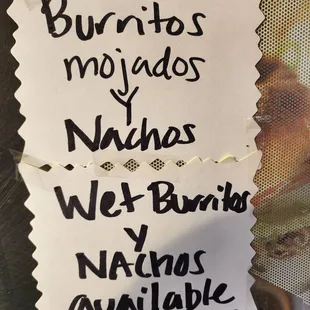 Burritos
mojados
y
Nachos
Wet Burritos
y
NAchos
available